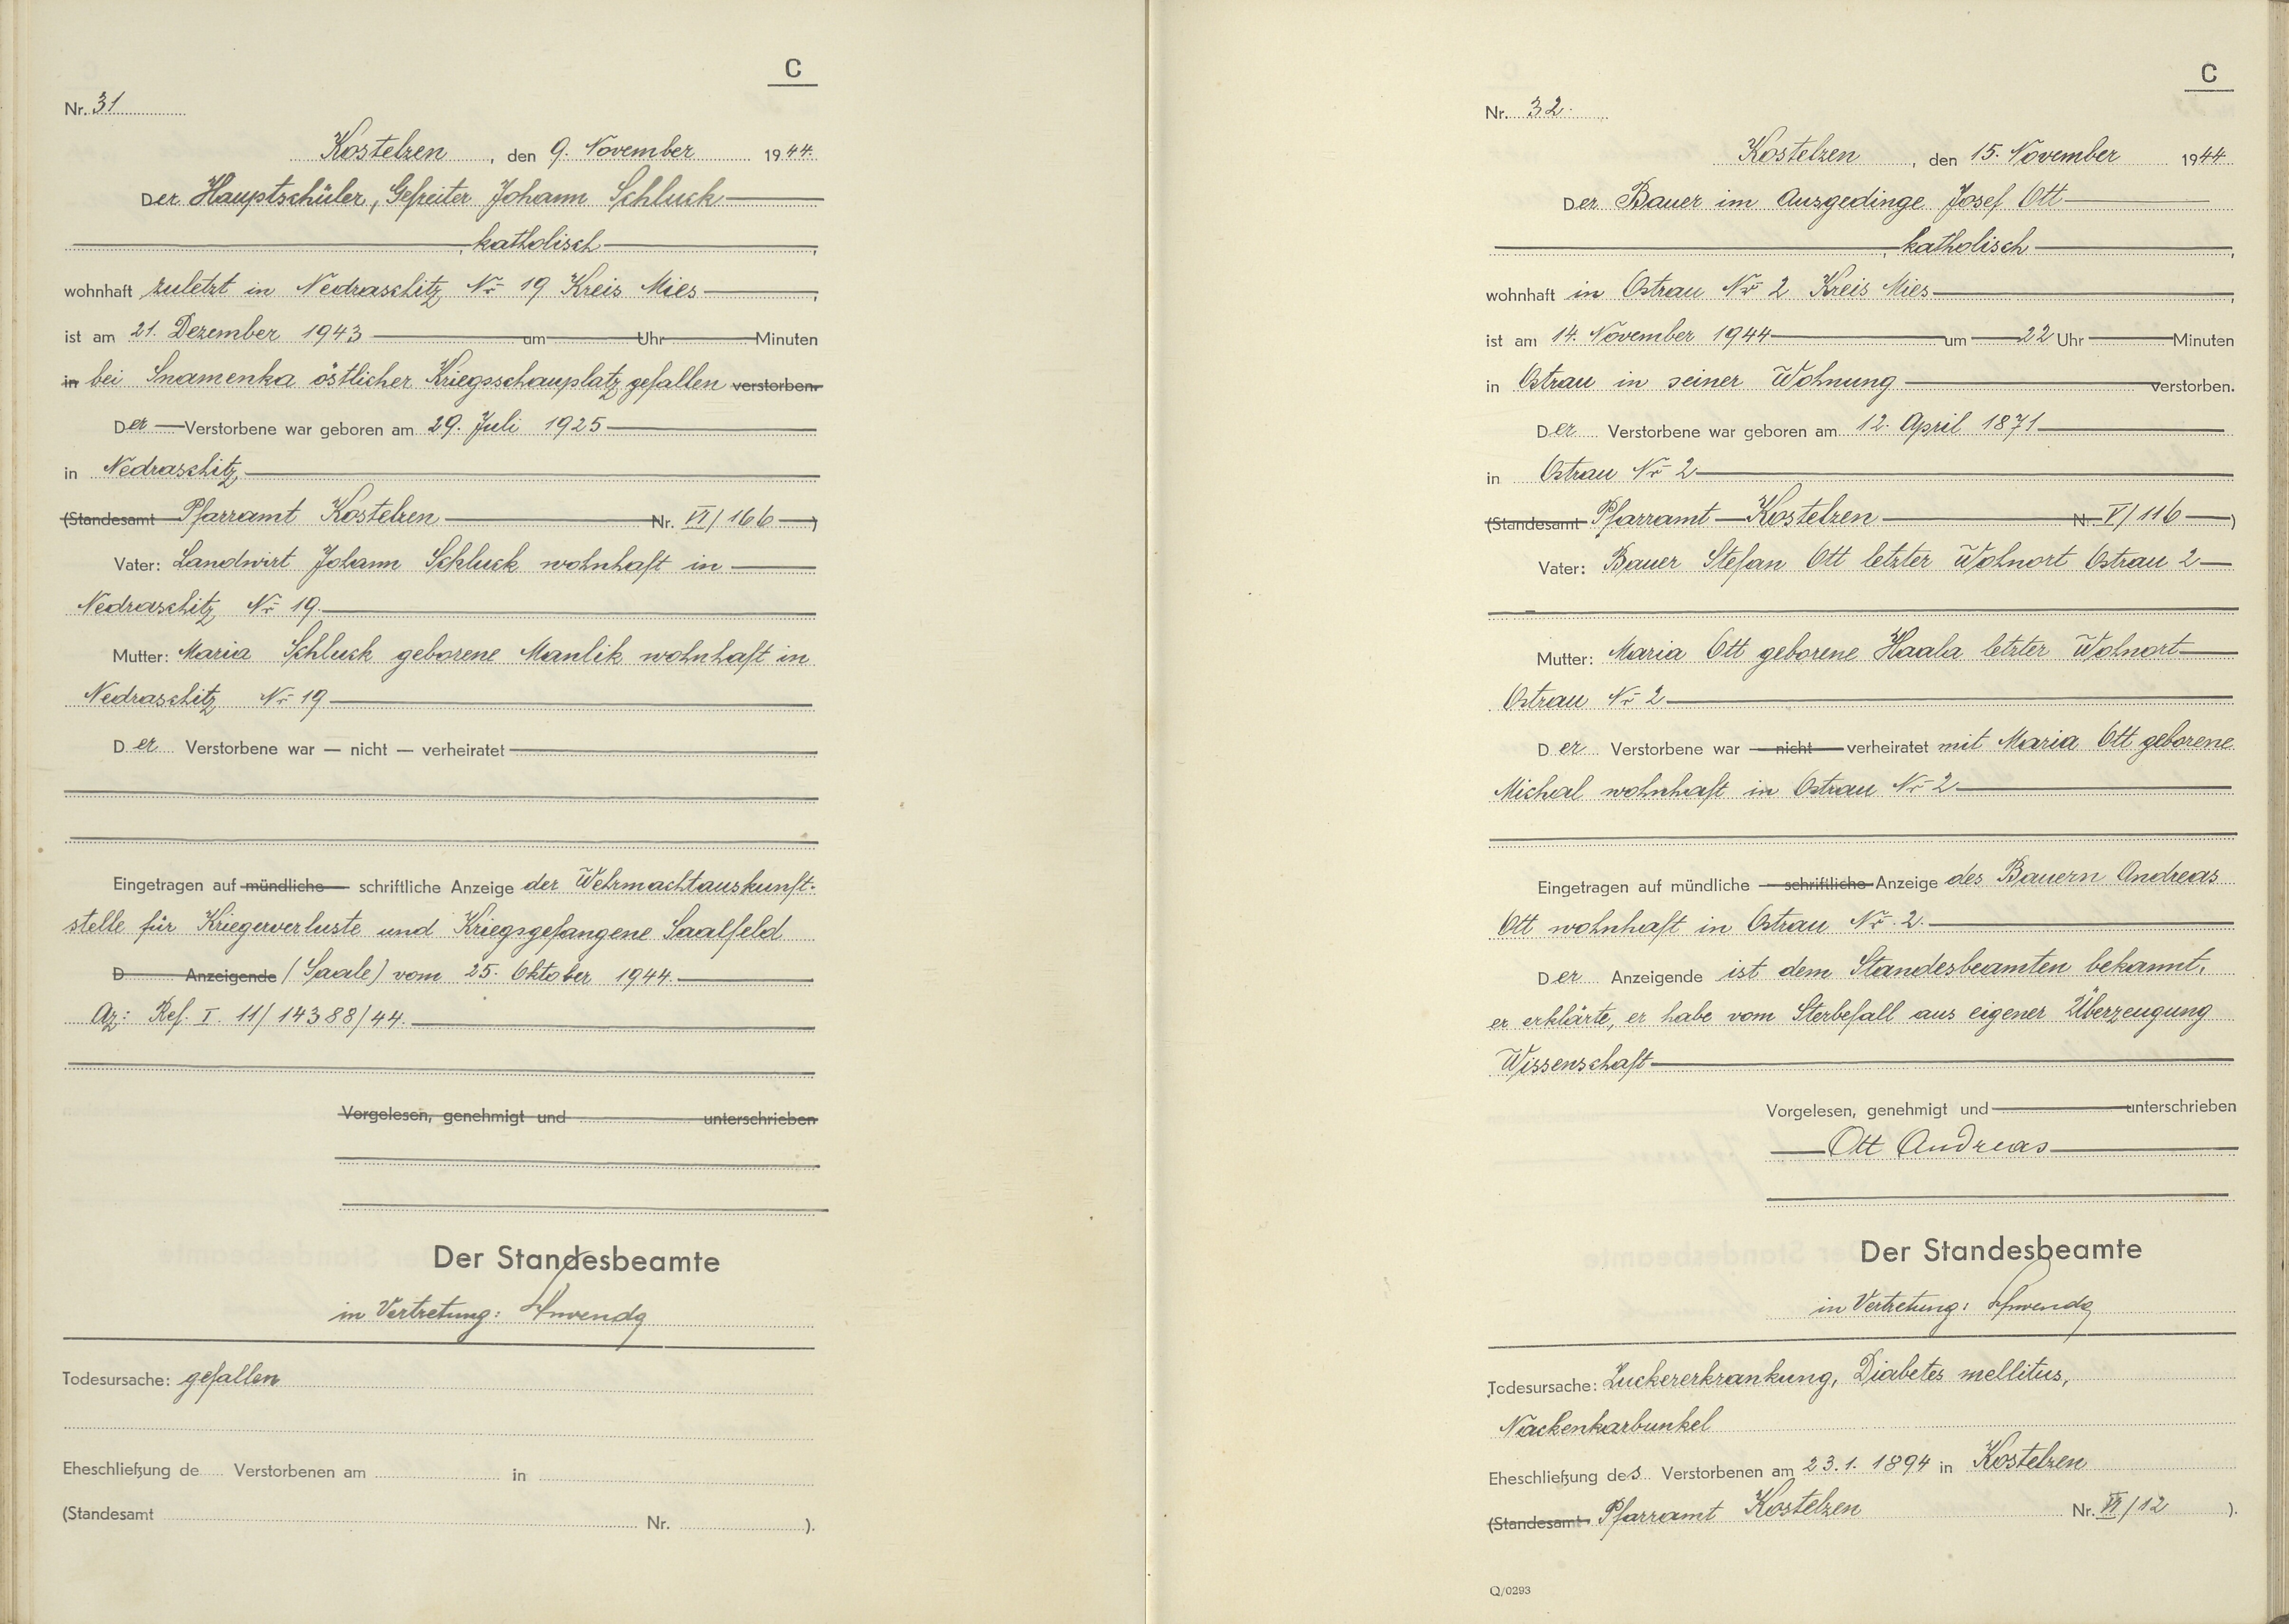 C
Nr. 31
Kostelzen, den 9. November 1944.
Der Hauptschüler, Gefreiter Johann Schluck
, katholisch ,
wohnhaft zuletzt in Nedraschitz Nr 19 Kreis Mies ,
ist am 21. Dezember 1943 um Uhr Minuten
in bei Snamenka östlicher Kriegsschauplatz gefallen verstorben.
Der Verstorbene war geboren am 29. Juli 1925
in Nedraschitz
(Standesamt Pfarramt Kostelzen Nr. VI/166 )
Vater: Landwirt Johann Schluck wohnhaft in
Nedraschitz Nr 19.
Mutter: Maria Schluck geborene Manlik wohnhaft in
Nedraschitz Nr 19
Der Verstorbene war — nicht — verheiratet
Eingetragen auf mündliche schriftliche Anzeige der Wehrmachtauskunft-
stelle für Kriegerverluste und Kriegsgefangene Saalfeld
D Anzeigende (Saale) vom 25. Oktober 1944.
Az: Ref. I. 11/14388/44.
Vorgelesen, genehmigt und unterschrieben
Der Standesbeamte
in Vertretung:
Todesursache: gefallen
Eheschließung de Verstorbenen am in
(Standesamt Nr. ).
C
Nr. 32.
Kostelzen, den 15. November 1944
Der Bauer im Ausgedinge Josef Ott
, katholisch ,
wohnhaft in Ostrau Nr 2 Kreis Mies ,
ist am 14. November 1944 um 22 Uhr Minuten
in Ostrau in seiner Wohnung verstorben.
Der Verstorbene war geboren am 12. April 1871
in Ostrau Nr 2
(Standesamt Pfarramt Kostelzen Nr. V/116 )
Vater: Bauer Stefan Ott letzter Wohnort Ostrau 2
Mutter: Maria Ott geborene Haala letzter Wohnort
Ostrau Nr 2
Der Verstorbene war — nicht — verheiratet mit Maria Ott geborene
Michal wohnhaft in Ostrau Nr 2
Eingetragen auf mündliche — schriftliche Anzeige des Bauern Andreas
Ott wohnhaft in Ostrau Nr. 2.
Der Anzeigende ist dem Standesbeamten bekannt,
er erklärte, er habe vom Sterbefall aus eigener Überzeugung
Wissenschaft
Vorgelesen, genehmigt und unterschrieben
Ott Andreas
Der Standesbeamte
in Vertretung:
Todesursache: Zuckererkrankung, Diabetes mellitus,
Nackenkarbunkel
Eheschließung des Verstorbenen am 23.1.1894 in Kostelzen
(Standesamt Pfarramt Kostelzen Nr. VI/12 ).
Q/0293